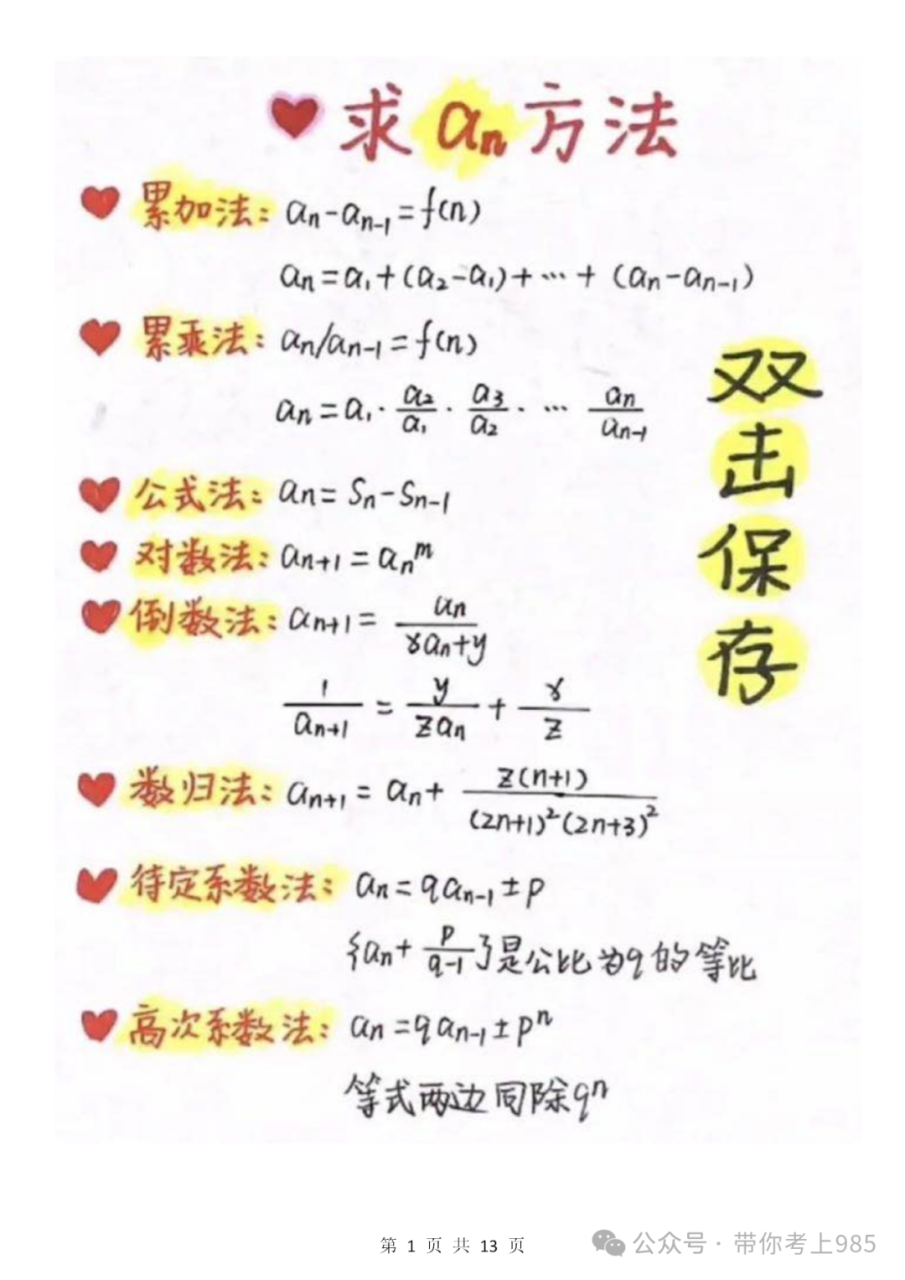 求 aₙ 方法
累加法: aₙ-aₙ₋₁=f(n)
aₙ=a₁+(a₂-a₁)+…+(aₙ-aₙ₋₁)
累乘法: aₙ/aₙ₋₁=f(n)
aₙ=a₁·a₂/a₁·a₃/a₂·…aₙ/aₙ₋₁
双击保存
公式法: aₙ=Sₙ-Sₙ₋₁
对数法: aₙ₊₁=aₙᵐ
倒数法: aₙ₊₁=aₙ/(xaₙ+y)
1/aₙ₊₁=y/(zaₙ)+x/z
数归法: aₙ₊₁=aₙ+z(n+1)/((2n+1)²(2n+3)²)
待定系数法: aₙ=qaₙ₋₁±p
{aₙ+p/(q-1)}是公比为q的等比
高次系数法: aₙ=qaₙ₋₁±pⁿ
等式两边同除qⁿ
第 1 页 共 13 页
公众号·带你考上985